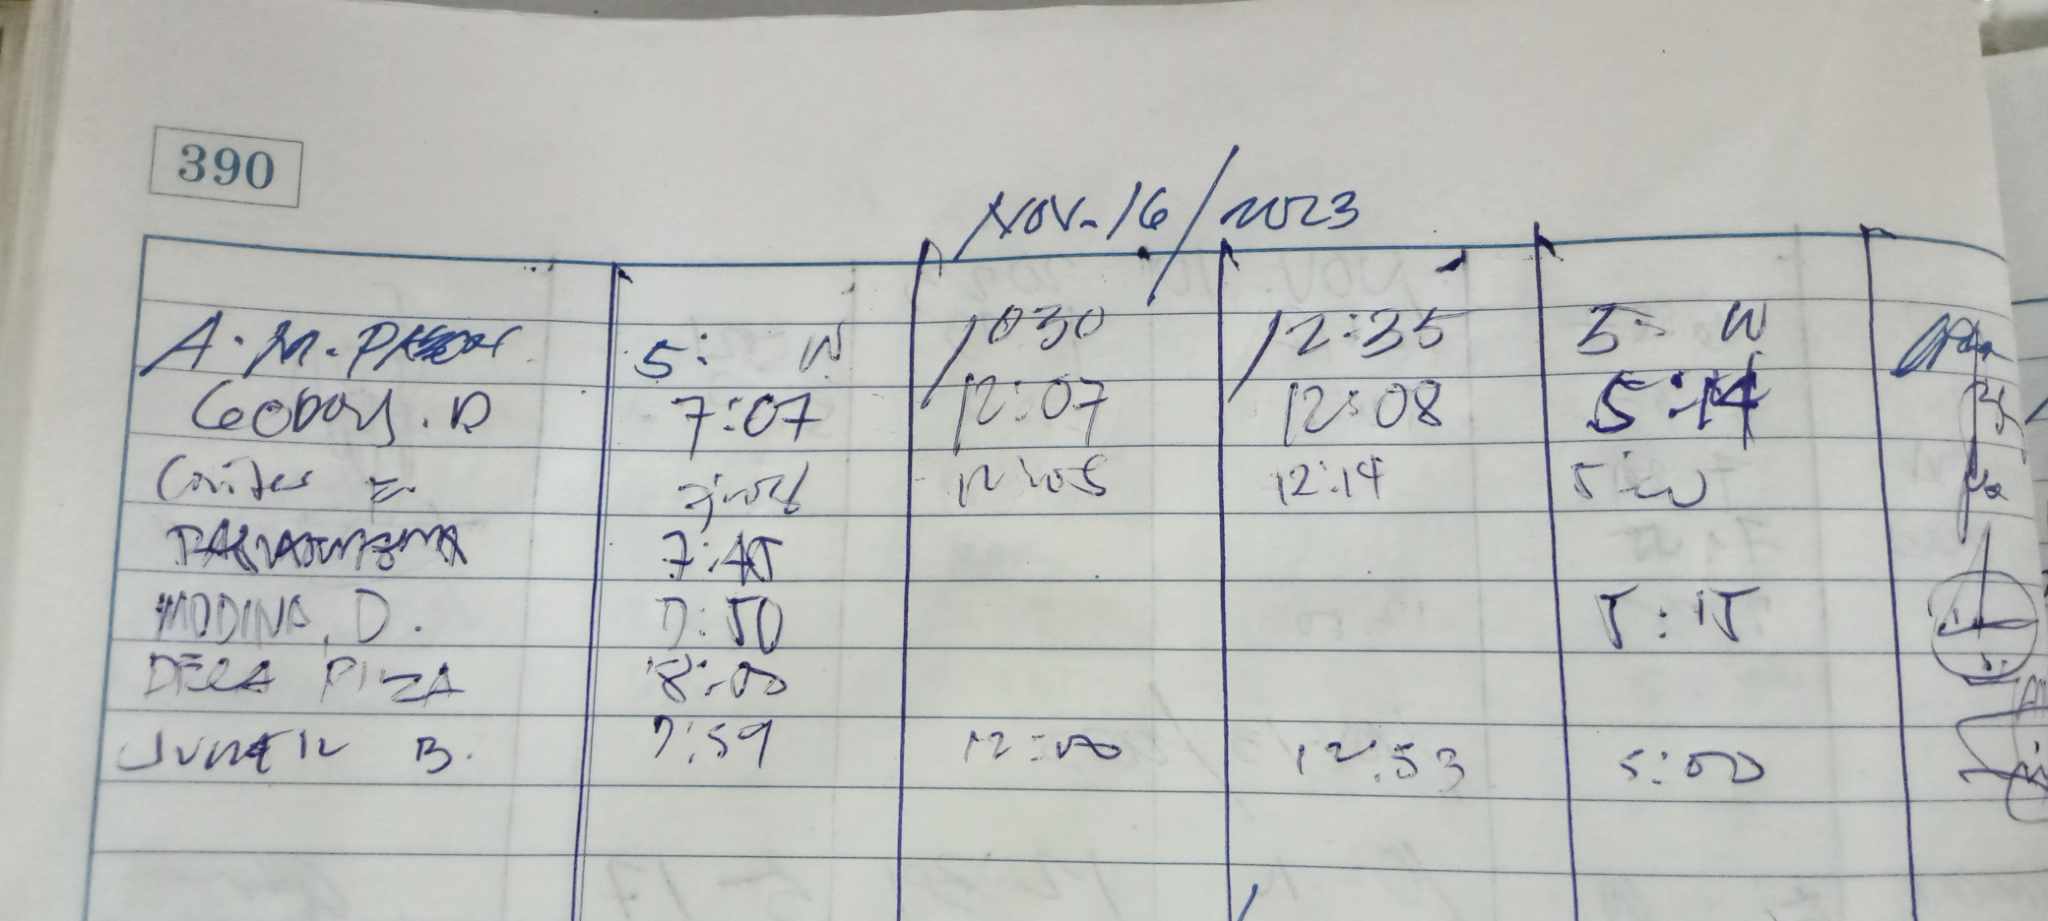 390
NOV. 16/2023
A. M. 5: W 1030 12:35 5: W
GODOY. D 7:07 12:07 12:08 5:14
12:05 12:14 5:W
7:45
MODINA, D. 7:50 5:15
DELA PIZA 8:00
B. 7:59 12:00 12:53 5:00